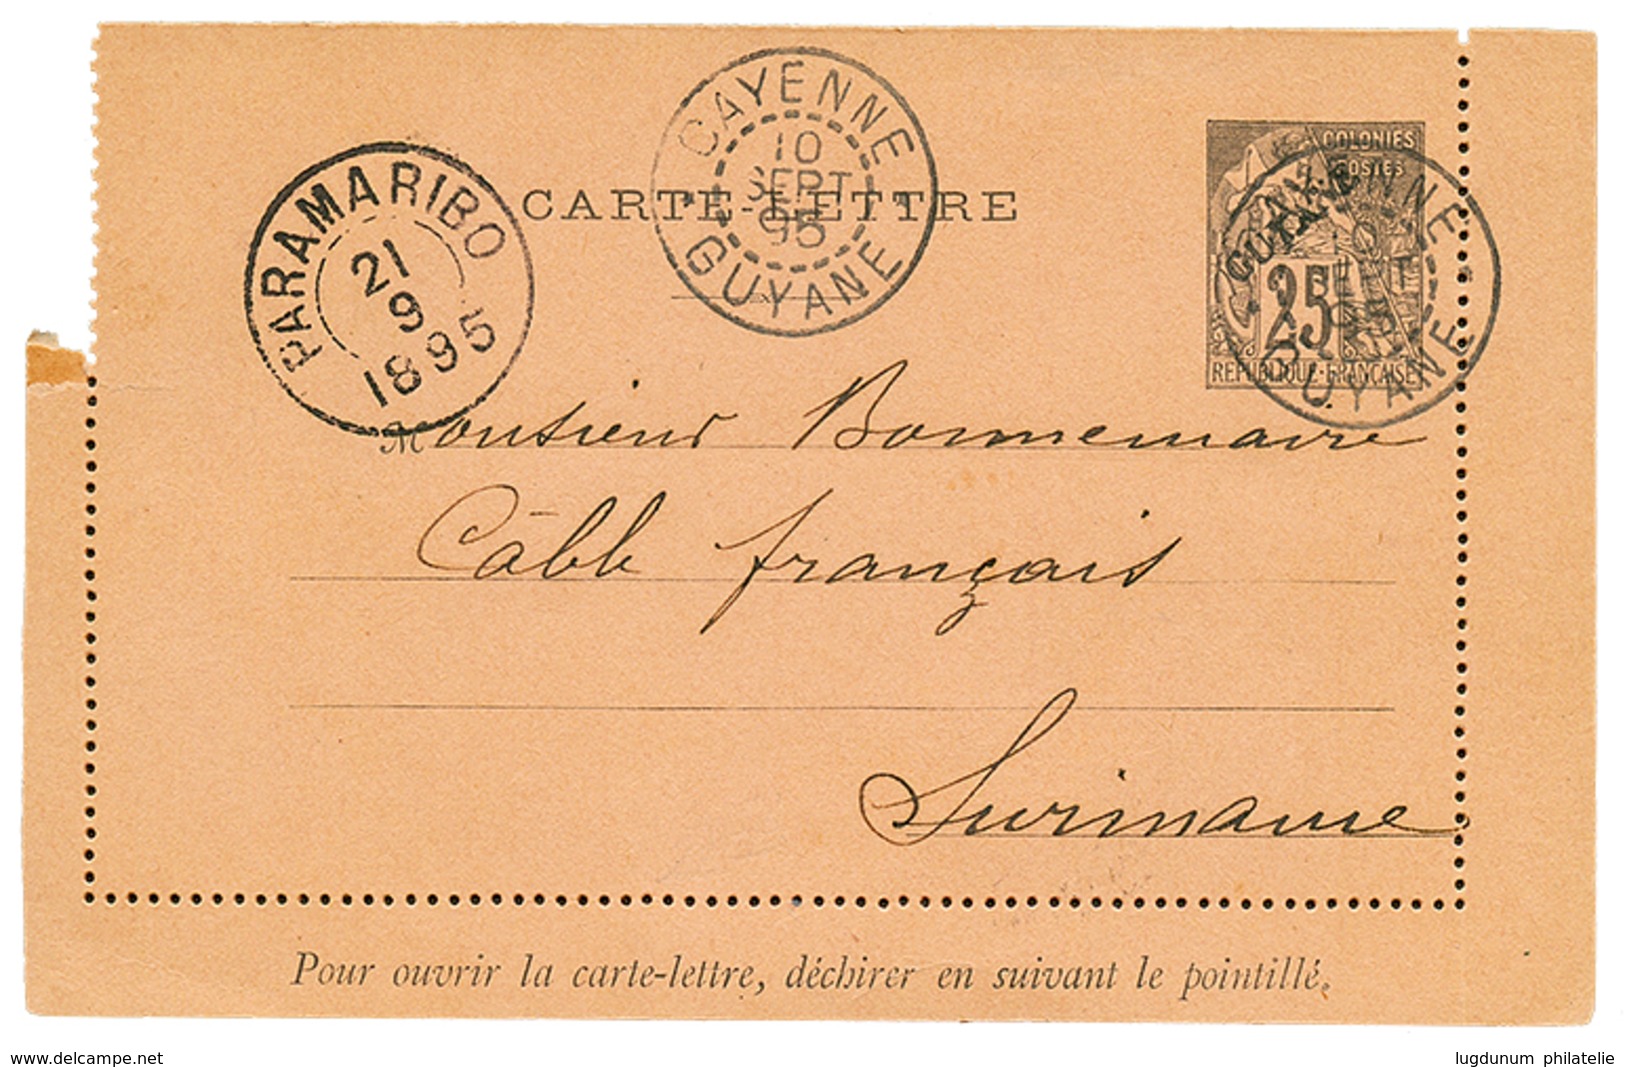 CAYENNE
10
SEPT
95
GUYANE
PARAMARIBO
21
9
1895
CARTE-LETTRE
COLONIES
POSTES
GUYANE
25
REPUBLIQUE-FRANÇAISE
GUYANE
Monsieur Bonnemaire
Câble français
Suriname
Pour ouvrir la carte-lettre, déchirer en suivant le pointillé.
www.delcampe.net
lugdunum philatelie